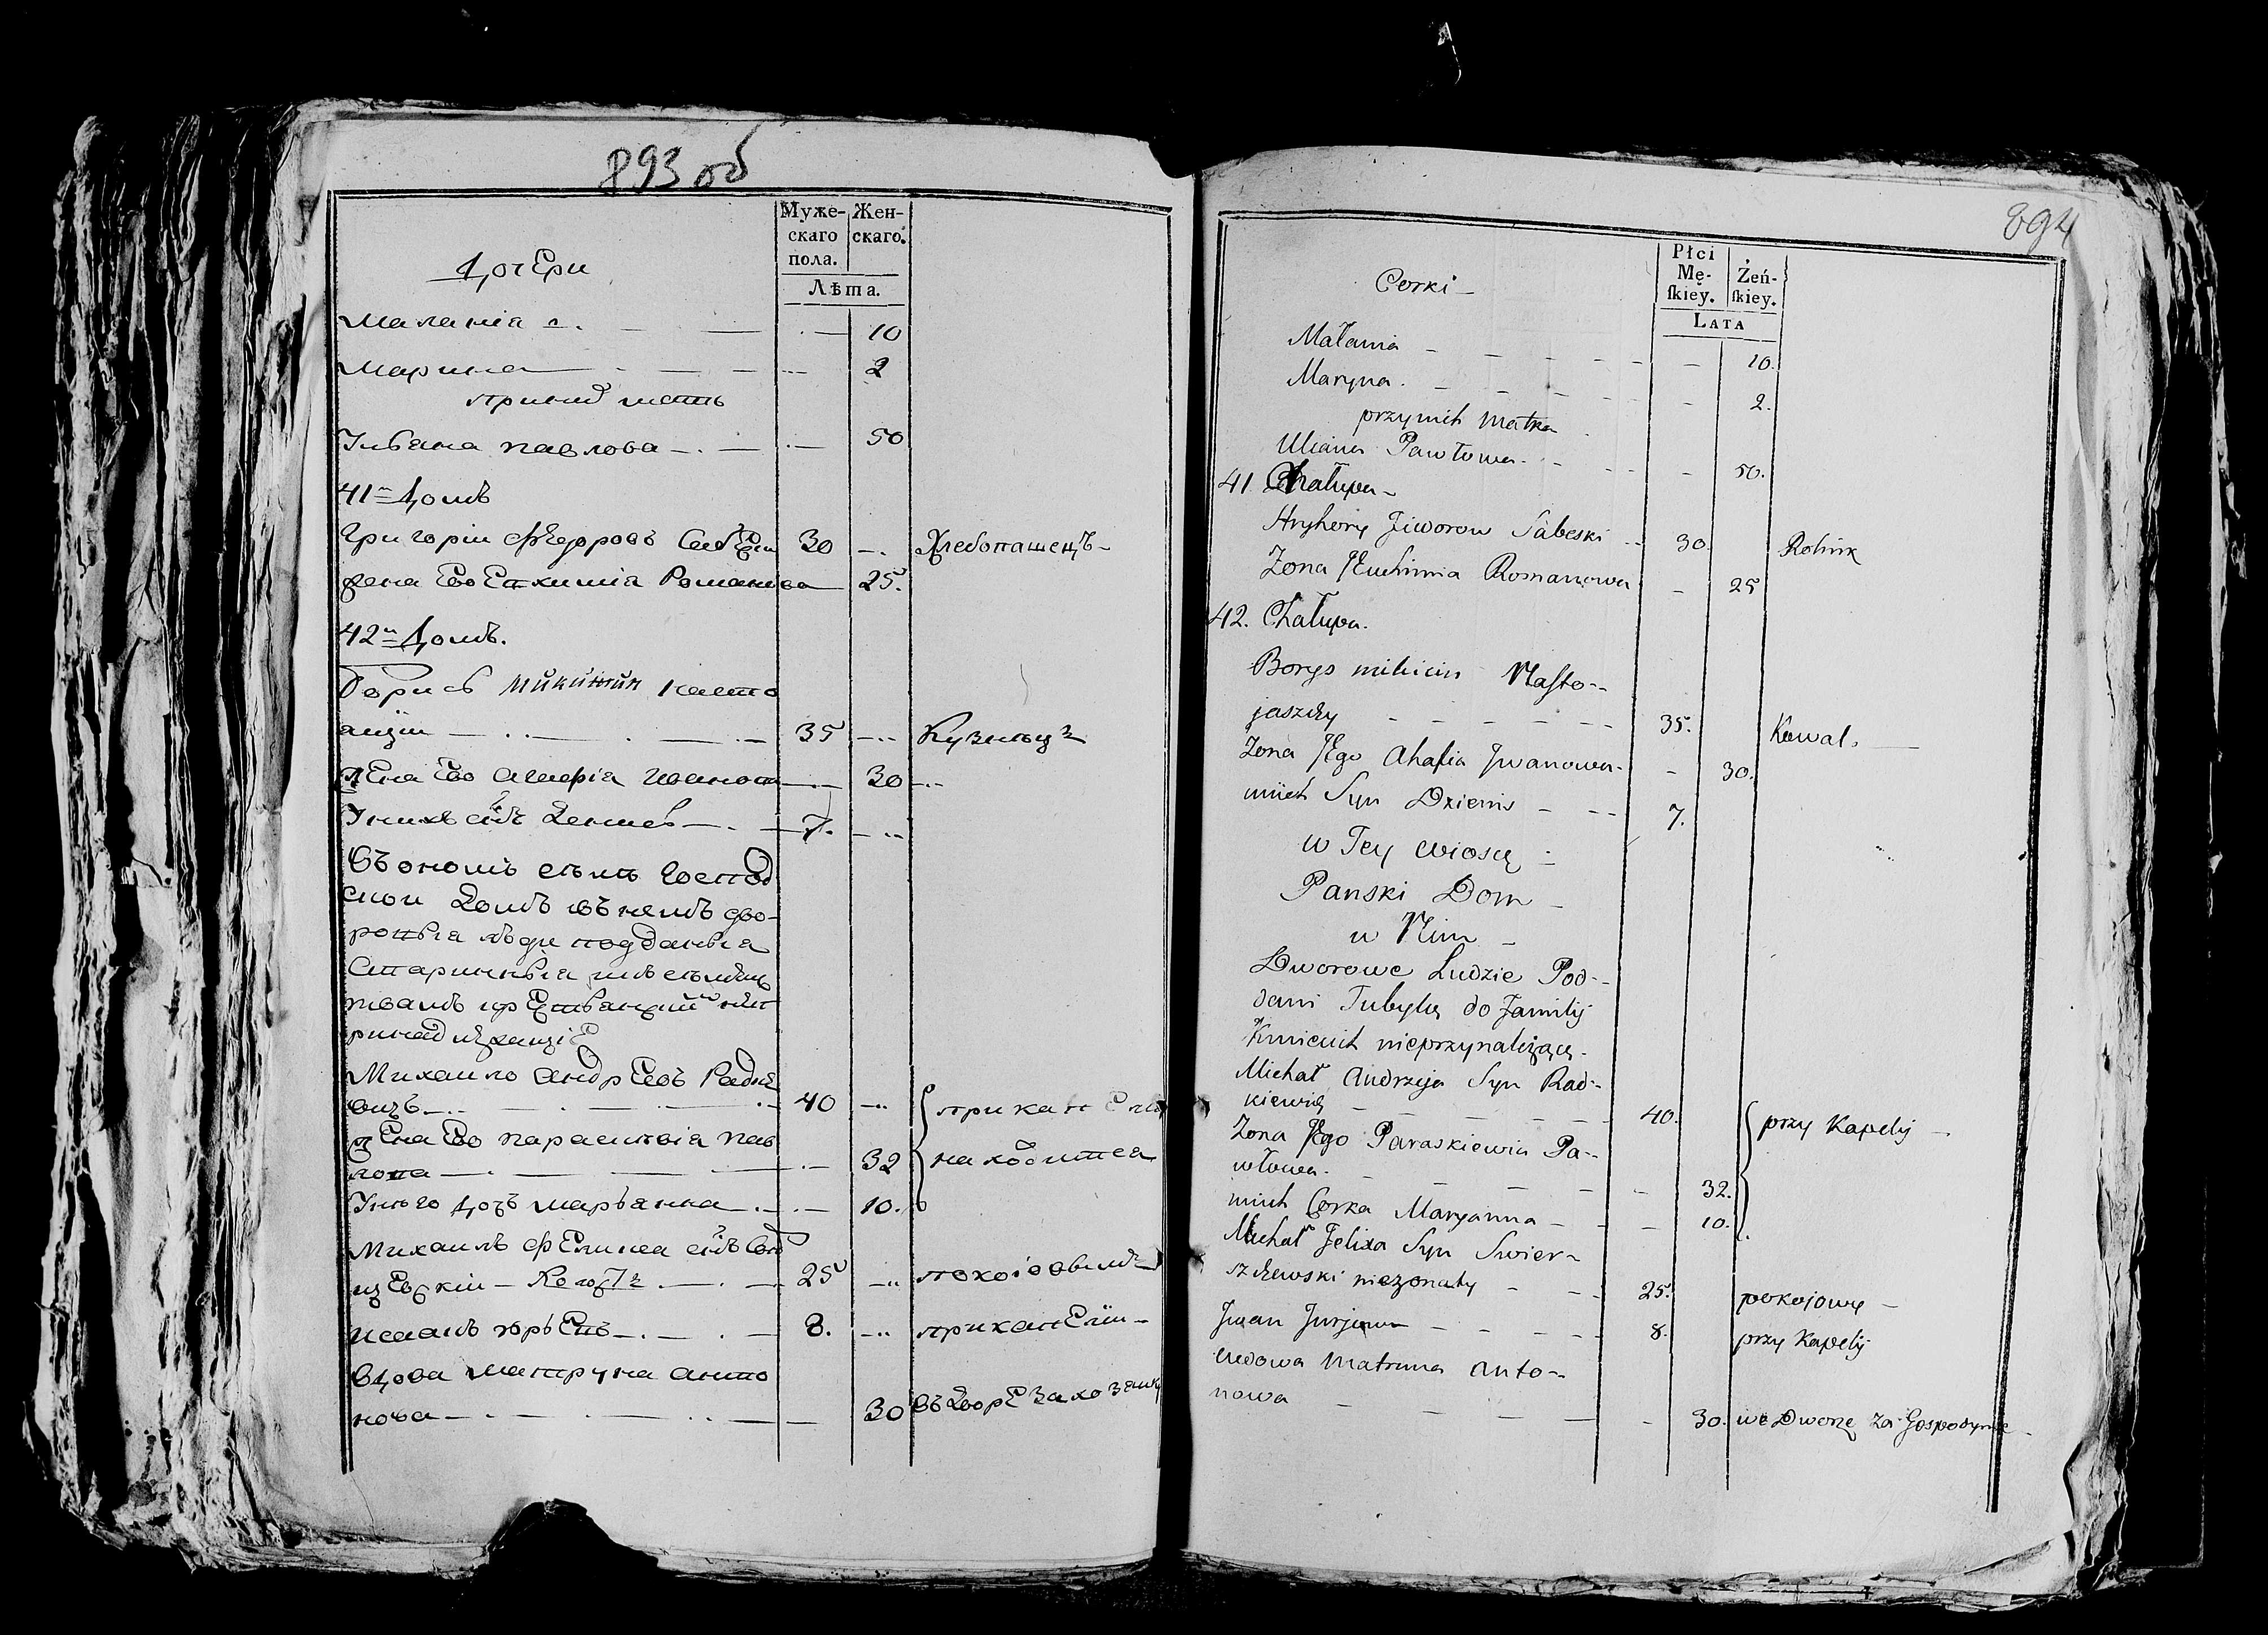 893 об
Муже-
скаго
пола.
Жен-
скаго.
Лѣта.
Дочери
Маланіа 10
Марина 2
при них мать
Ульяна Павлова 50
41й Домъ
Григорій Федоровъ 30 Хлебопашецъ
жена Ево Евхимія Романова 25.
42й Домъ.
Борисъ Микитин Насто
ащій 35 Кузнецъ
жена Ево Агафіа Иванова 30
У них сынъ Денисъ 7.
Въ ономъ селѣ Господ
скои Домъ въ немъ дво-
ровыя люди подданыя
Старинныя
крестьянский не п
ринадлежащіе
Михайло Андреевъ Радке
вичъ 40 при капелій
жена Ево Парасковіа Пав
лова 32 находится
У него дочь Марьянна 10.
Михаилъ Феликса сынъ
Холостъ 25 покоіовымъ
Иванъ Юрьевъ 8. при капеліи
Вдова Матруна Анто
нова 30 въ Дворе За хозяику
894
Płci
Mę-
ſkiey.
Żeń-
ſkiey.
LATA
Corki
Małania 10.
Maryna 2.
przynich Matka
Uliana Pawłowa 50.
41. Chałupa
Hryhory Fiworow Sabeski 30. Rolnik
Zona JEuchimia Romanowa 25
42. Chałupa.
Borys mikicin Nasto-
jaszczy 35. Kowal.
Zona JEgo Ahafia Jwanowa 30.
unich Syn Dzienis 7.
w Tey wioscę
Panski Dom
w Nim
Dworowe Ludzie Pod-
dani Tubylcy do Familij
Kmiecich nieprzynalężącę
Michał Andrzeja Syn Rad-
kiewicz 40. przy Kapelij
Zona JEgo Paraskiewia Pa-
włowa 32.
unich Corka Maryanna 10.
Michał Felixa Syn Swier-
szczewski niezonaty 25. pokojowy
Jwan Jurjew 8. przy Kapelij
wdowa Matruna Anto-
nowa 30. we Dworze za Gospodynie